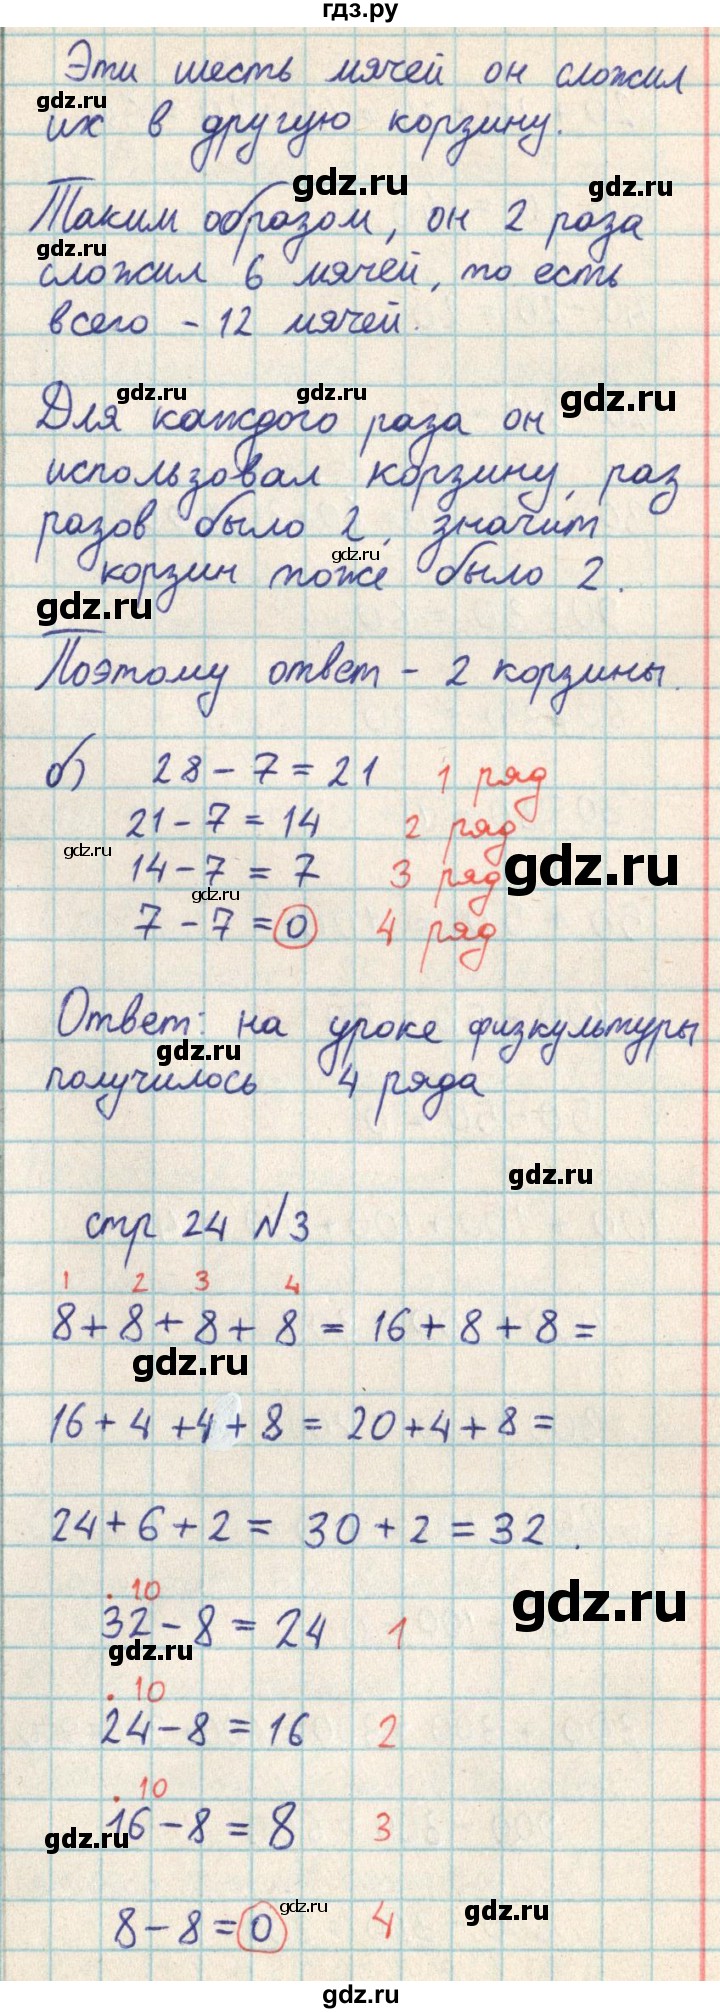 гдз.ру
Эти шесть мячей он сложил
gdz.ru
их в другую корзину.
gdz.ru
gdz.ru
Таким образом, он 2 раза
gdz.ru
сложил 6 мячей, то есть
всего - 12 мячей.
gdz.ru
gdz.ru
gdz.ru
Для каждого раза он
использовал корзину, раз
разов было 2, значит
gdz.ru
корзин тоже было 2.
gdz.ru
Поэтому ответ - 2 корзины.
б) 28 - 7 = 21 1 ряд
21 - 7 = 14 2 ряд
gdz.ru
14 - 7 = 7 3 ряд
gdz.ru
gdz.ru
7 - 7 = 0 4 ряд
Ответ: на уроке физкультуры
gdz.ru
получилось 4 ряда
gdz.ru
стр 24 №3
1 2 3 4
8 + 8 + 8 + 8 = 16 + 8 + 8 =
gdz.ru
16 + 4 + 4 + 8 = 20 + 4 + 8 =
24 + 6 + 2 = 30 + 2 = 32.
. 10
gdz.ru
32 - 8 = 24 1
gdz.ru
. 10
24 - 8 = 16 2
. 10
16 - 8 = 8 3
gdz.ru
gdz.ru
gdz.ru
8 - 8 = 0 4
gdz.ru